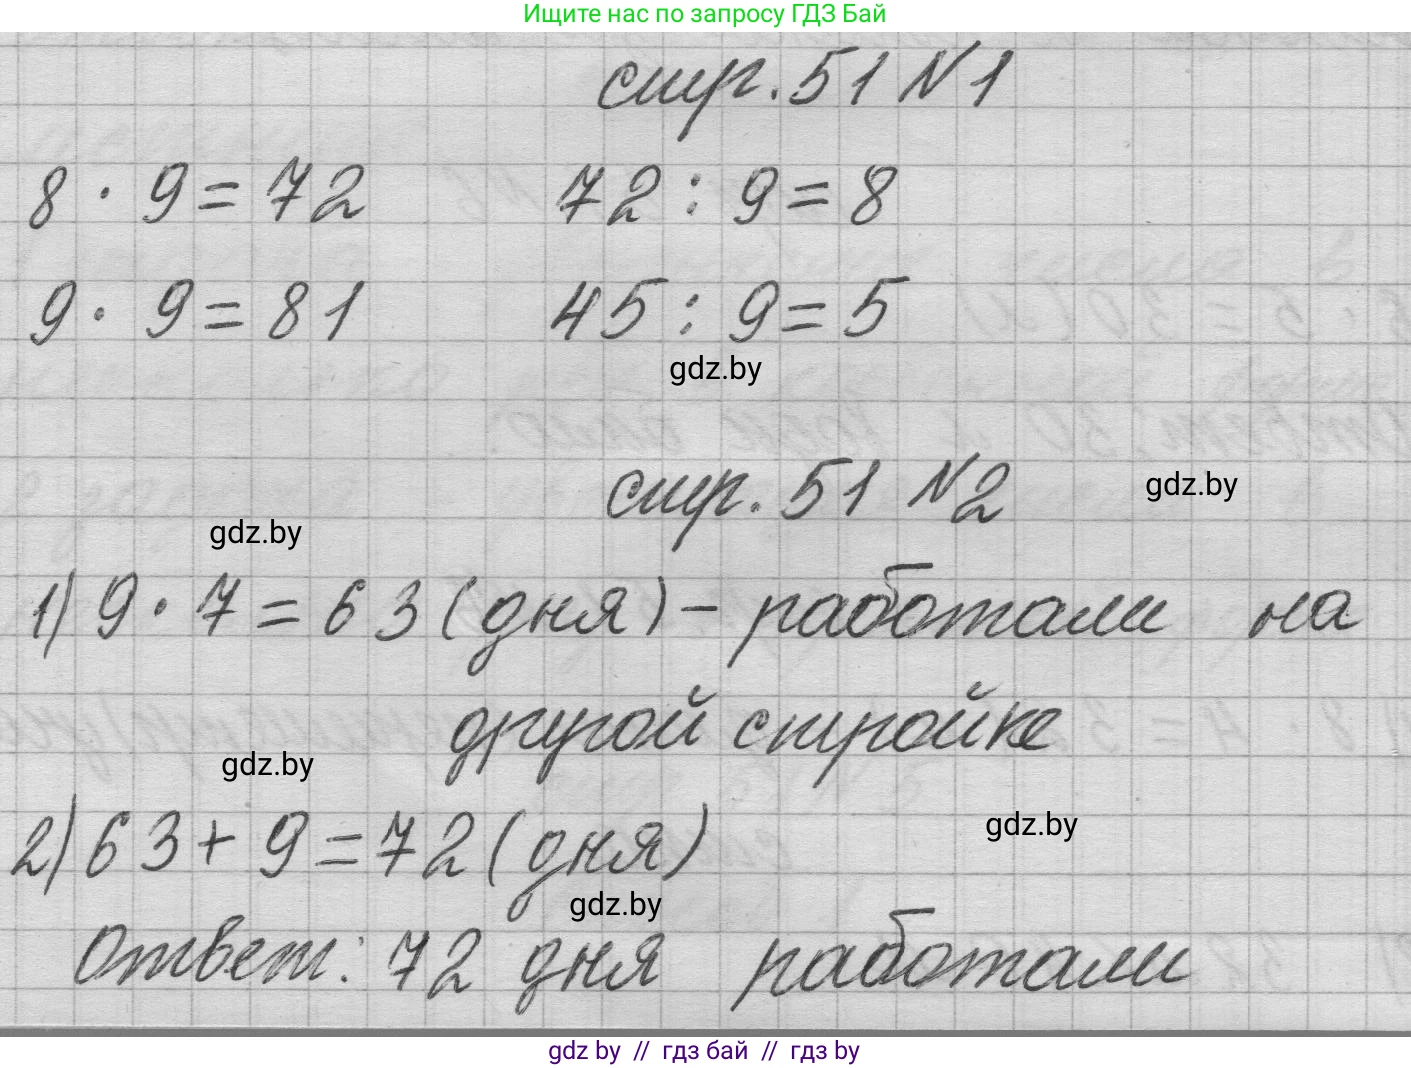 Ищите нас по запросу ГДЗ Бай
стр. 51 №1
8 · 9 = 72 72 : 9 = 8
9 · 9 = 81 45 : 9 = 5
gdz.by
стр. 51 №2
gdz.by
gdz.by
1) 9 · 7 = 63 (дня) – работали на
другой стройке
gdz.by
2) 63 + 9 = 72 (дня)
gdz.by
gdz.by
Ответ: 72 дня работали
gdz by // гдз бай // гдз by